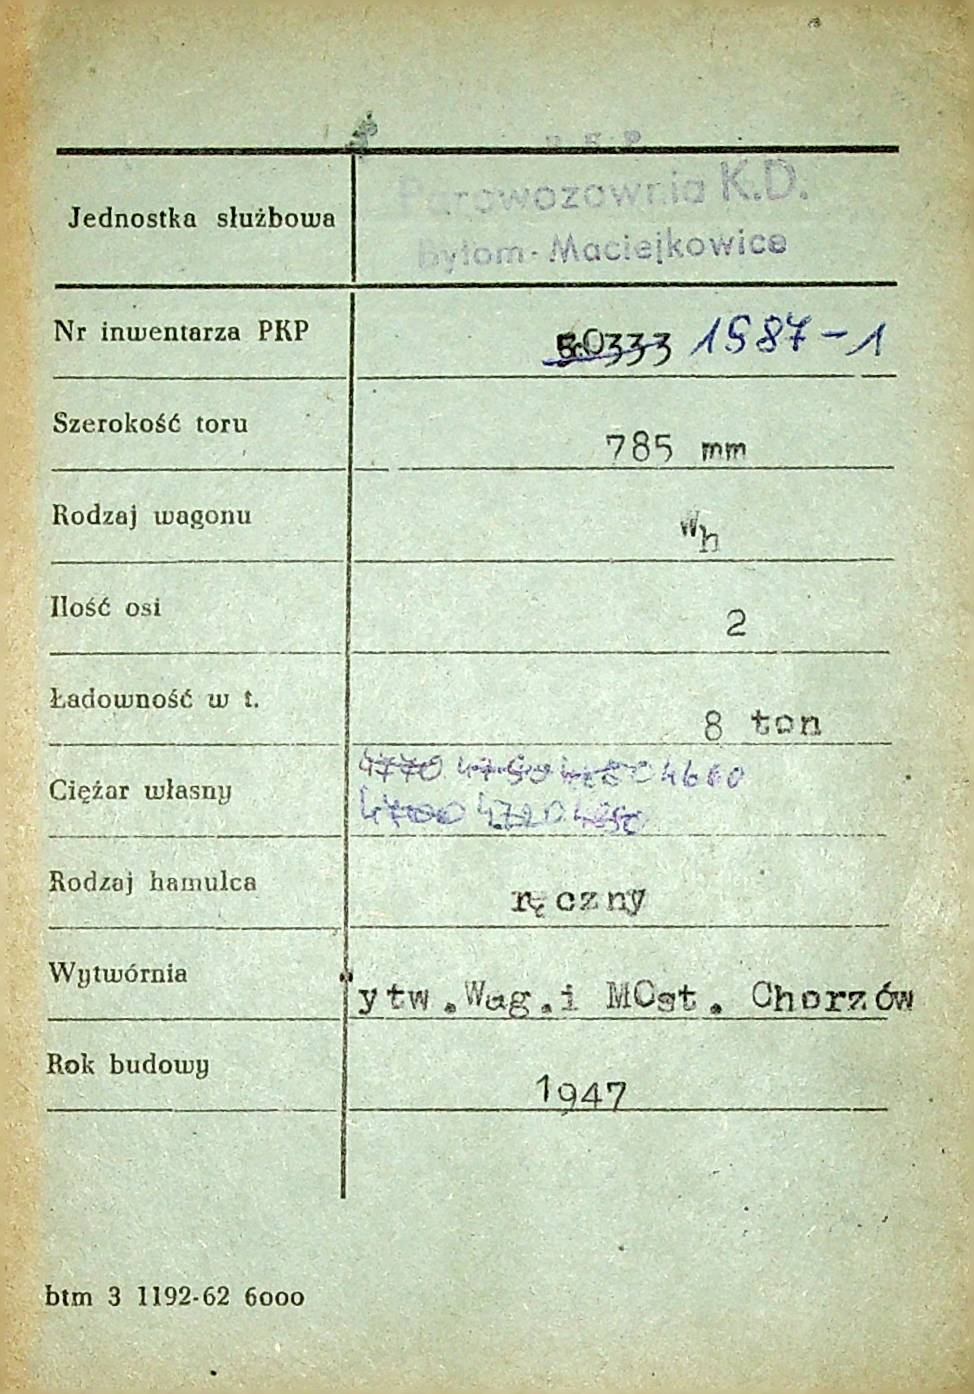 Parowozownia K.D.
Jednostka służbowa
Bytom-Maciejkowice
Nr inwentarza PKP 1987-1
Szerokość toru 785 mm
Rodzaj wagonu Wh
Ilość osi 2
Ładowność w t. 8 ton
4770 4660
Ciężar własny
4700 4720
Rodzaj hamulca ręczny
Wytwórnia ytw.Wag.i MOst. Chorzów
Rok budowy 1947
btm 3 1192-62 6000